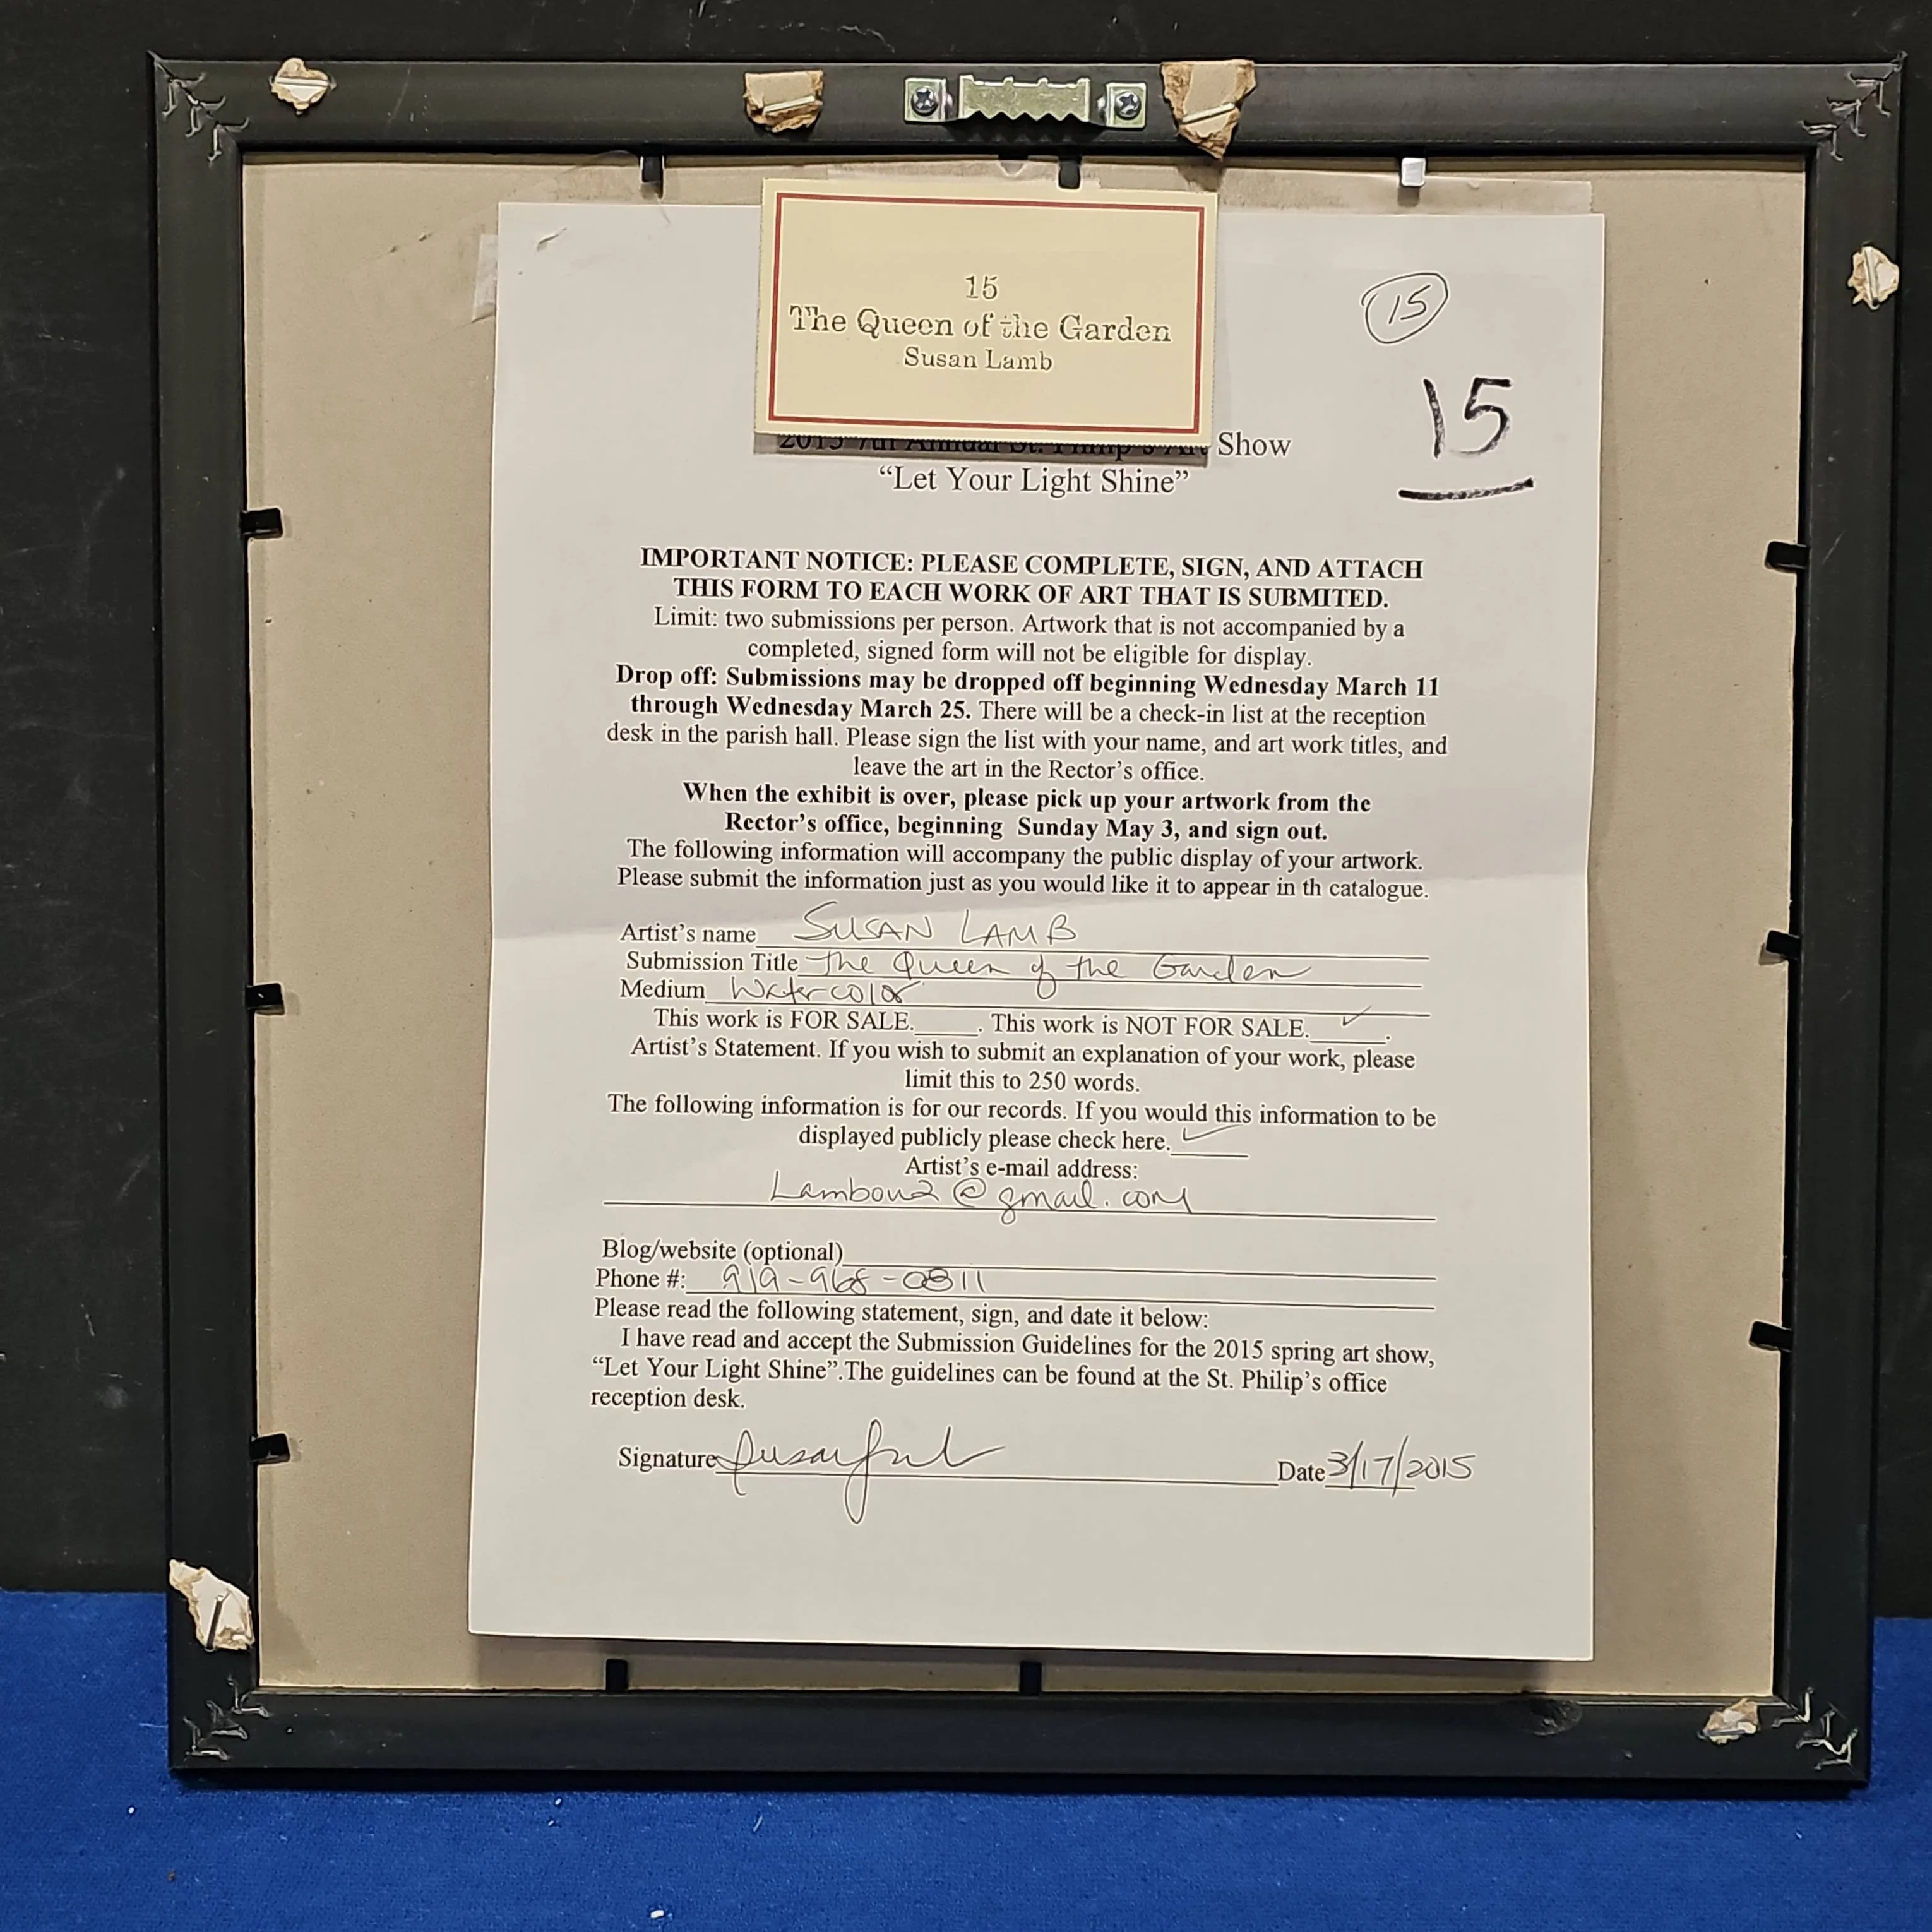 15
The Queen of the Garden
Susan Lamb
15
15
2015 7th Annual St. Philip's Art Show
“Let Your Light Shine”
IMPORTANT NOTICE: PLEASE COMPLETE, SIGN, AND ATTACH
THIS FORM TO EACH WORK OF ART THAT IS SUBMITED.
Limit: two submissions per person. Artwork that is not accompanied by a
completed, signed form will not be eligible for display.
Drop off: Submissions may be dropped off beginning Wednesday March 11
through Wednesday March 25. There will be a check-in list at the reception
desk in the parish hall. Please sign the list with your name, and art work titles, and
leave the art in the Rector’s office.
When the exhibit is over, please pick up your artwork from the
Rector’s office, beginning Sunday May 3, and sign out.
The following information will accompany the public display of your artwork.
Please submit the information just as you would like it to appear in th catalogue.
Artist’s name SUSAN LAMB
Submission Title The Queen of the Garden
Medium Watercolor
This work is FOR SALE._____. This work is NOT FOR SALE. ✓.
Artist’s Statement. If you wish to submit an explanation of your work, please
limit this to 250 words.
The following information is for our records. If you would this information to be
displayed publicly please check here. ✓
Artist’s e-mail address:
Lambou2@gmail.com
Blog/website (optional)
Phone #: 919-968-0811
Please read the following statement, sign, and date it below:
I have read and accept the Submission Guidelines for the 2015 spring art show,
“Let Your Light Shine”.The guidelines can be found at the St. Philip’s office
reception desk.
Signature Date 3/17/2015